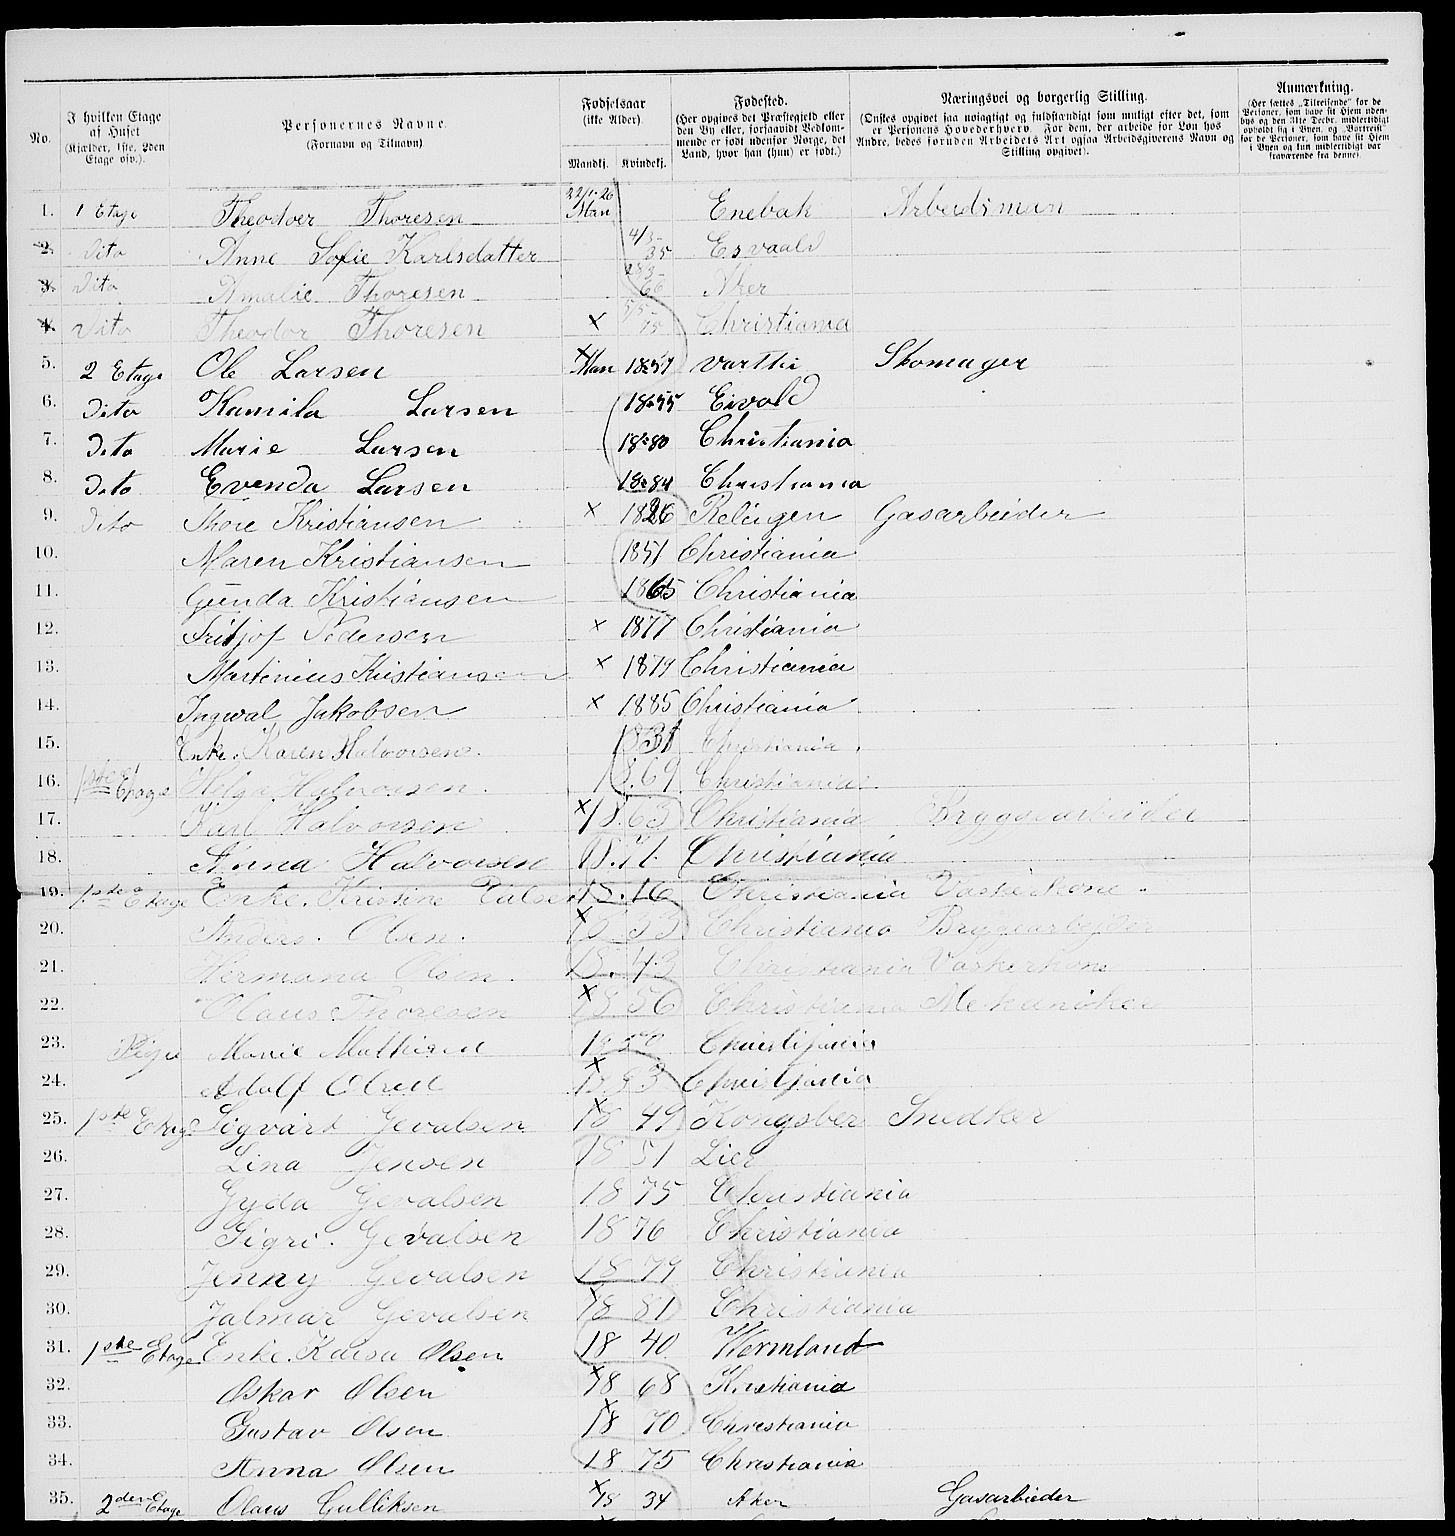 No. I hvilken Etage af Huset (Kjælder, 1ste, 2den Etage osv.). Personernes Navne. (Fornavn og Tilnavn) Fødselsaar (ikke Alder). Mandkj. Kvindekj. Fødested. (Her opgives det Præstegjeld eller den By eller, forsaavidt Vedkommende er født udenfor Norge, det Land, hvor han (hun) er født.) Næringsvei og borgerlig Stilling. (Ønskes opgivet saa nøiagtigt og fuldstændigt som muligt efter det, som er Personens Hovederhverv. For dem, der arbeide for Løn hos Andre, bedes foruden Arbeidets Art ogsaa Arbeidsgiverens Navn og Stilling opgivet). Anmærkning. (Her sættes „Tilreisende" for de Personer, som have sit Hjem udenbys og den 31te Decbr. midlertidigt opholdt sig i Byen, og „Bortreist" for de Personer, som have sit Hjem i Byen og kun midlertidigt var fraværende fra denne)
1. 1 Etage Theodver Thoresen 22/1-26 Man Enebak Arbeidsman
2. Dito Anne Sofie Karlsdatter 4/3-35 Esvaald
3. Dito Amalie Thoresen 28/3-66 Aker
4. Dito Theodor Thoresen x 5/5-75 Christiania
5. 2 Etage Ole Larsen x Man 1857 Skomager
6. Dito Kamila Larsen 1855 Eivold
7. Dito Marie Larsen 1880 Christiania
8. Dito Evenda Larsen 1884 Christiania
9. Dito Thore Kristiansen x 1826 Relingen Gasarbeider
10. Maren Kristiansen 1851 Christiania
11. Gunda Kristiansen 1865 Christiania
12. Fritjof Pedersen x 1877 Christiania
13. Martinius Kristiansen x 1879 Christiania
14. Ingwal Jakobsen x 1885 Christiania
15. Enke. Karen Halvorsen. 1831 Christiania.
16. 1ste Etage Helga Halvorsen. 18.69 Christiania
17. Karl Halvorsen x 18.63 Christiania Bryggearbeider
18. Anna Halvorsen 18.71. Christiania
19. 1ste Etage Enke. Kristine 18.16 Christiania Vaskerkone.
20. Anders. Olsen. x 18 53 Christiania Bryggearbejder
21. Hermana Olsen. 18.43 Christiania Vaskerkone
22. Olaus Thoresen x 18 56 Christiania Mekaniker
23. Pige Marie Mathisen 18 50 Christijania
24. Adolf Olsen x 18 53 Christjania
25. 1ste Etage Sigvart Gevalsen x 18 49 Kongsber Snedker
26. Lina Jensen 18 51 Lier
27. Gyda Gevalsen 18 75 Christiania
28. Sigri. Gevalsen 18 76 Christiania
29. Jenny Gevalsen 18 79 Christiania
30. Jalmar Gevalsen x 18 81 Christiania
31. 1ste Etage Enke. Kaisa Olsen 18 40 Wermland
32. Oskar Olsen x 18 68 Kristiania
33. Gustav Olsen x 18 70 Christiania
34. Anna Olsen 18 75 Christiania
35. 2den Etage Olaus Gulliksen x 18 34 Aker Gasarbieder